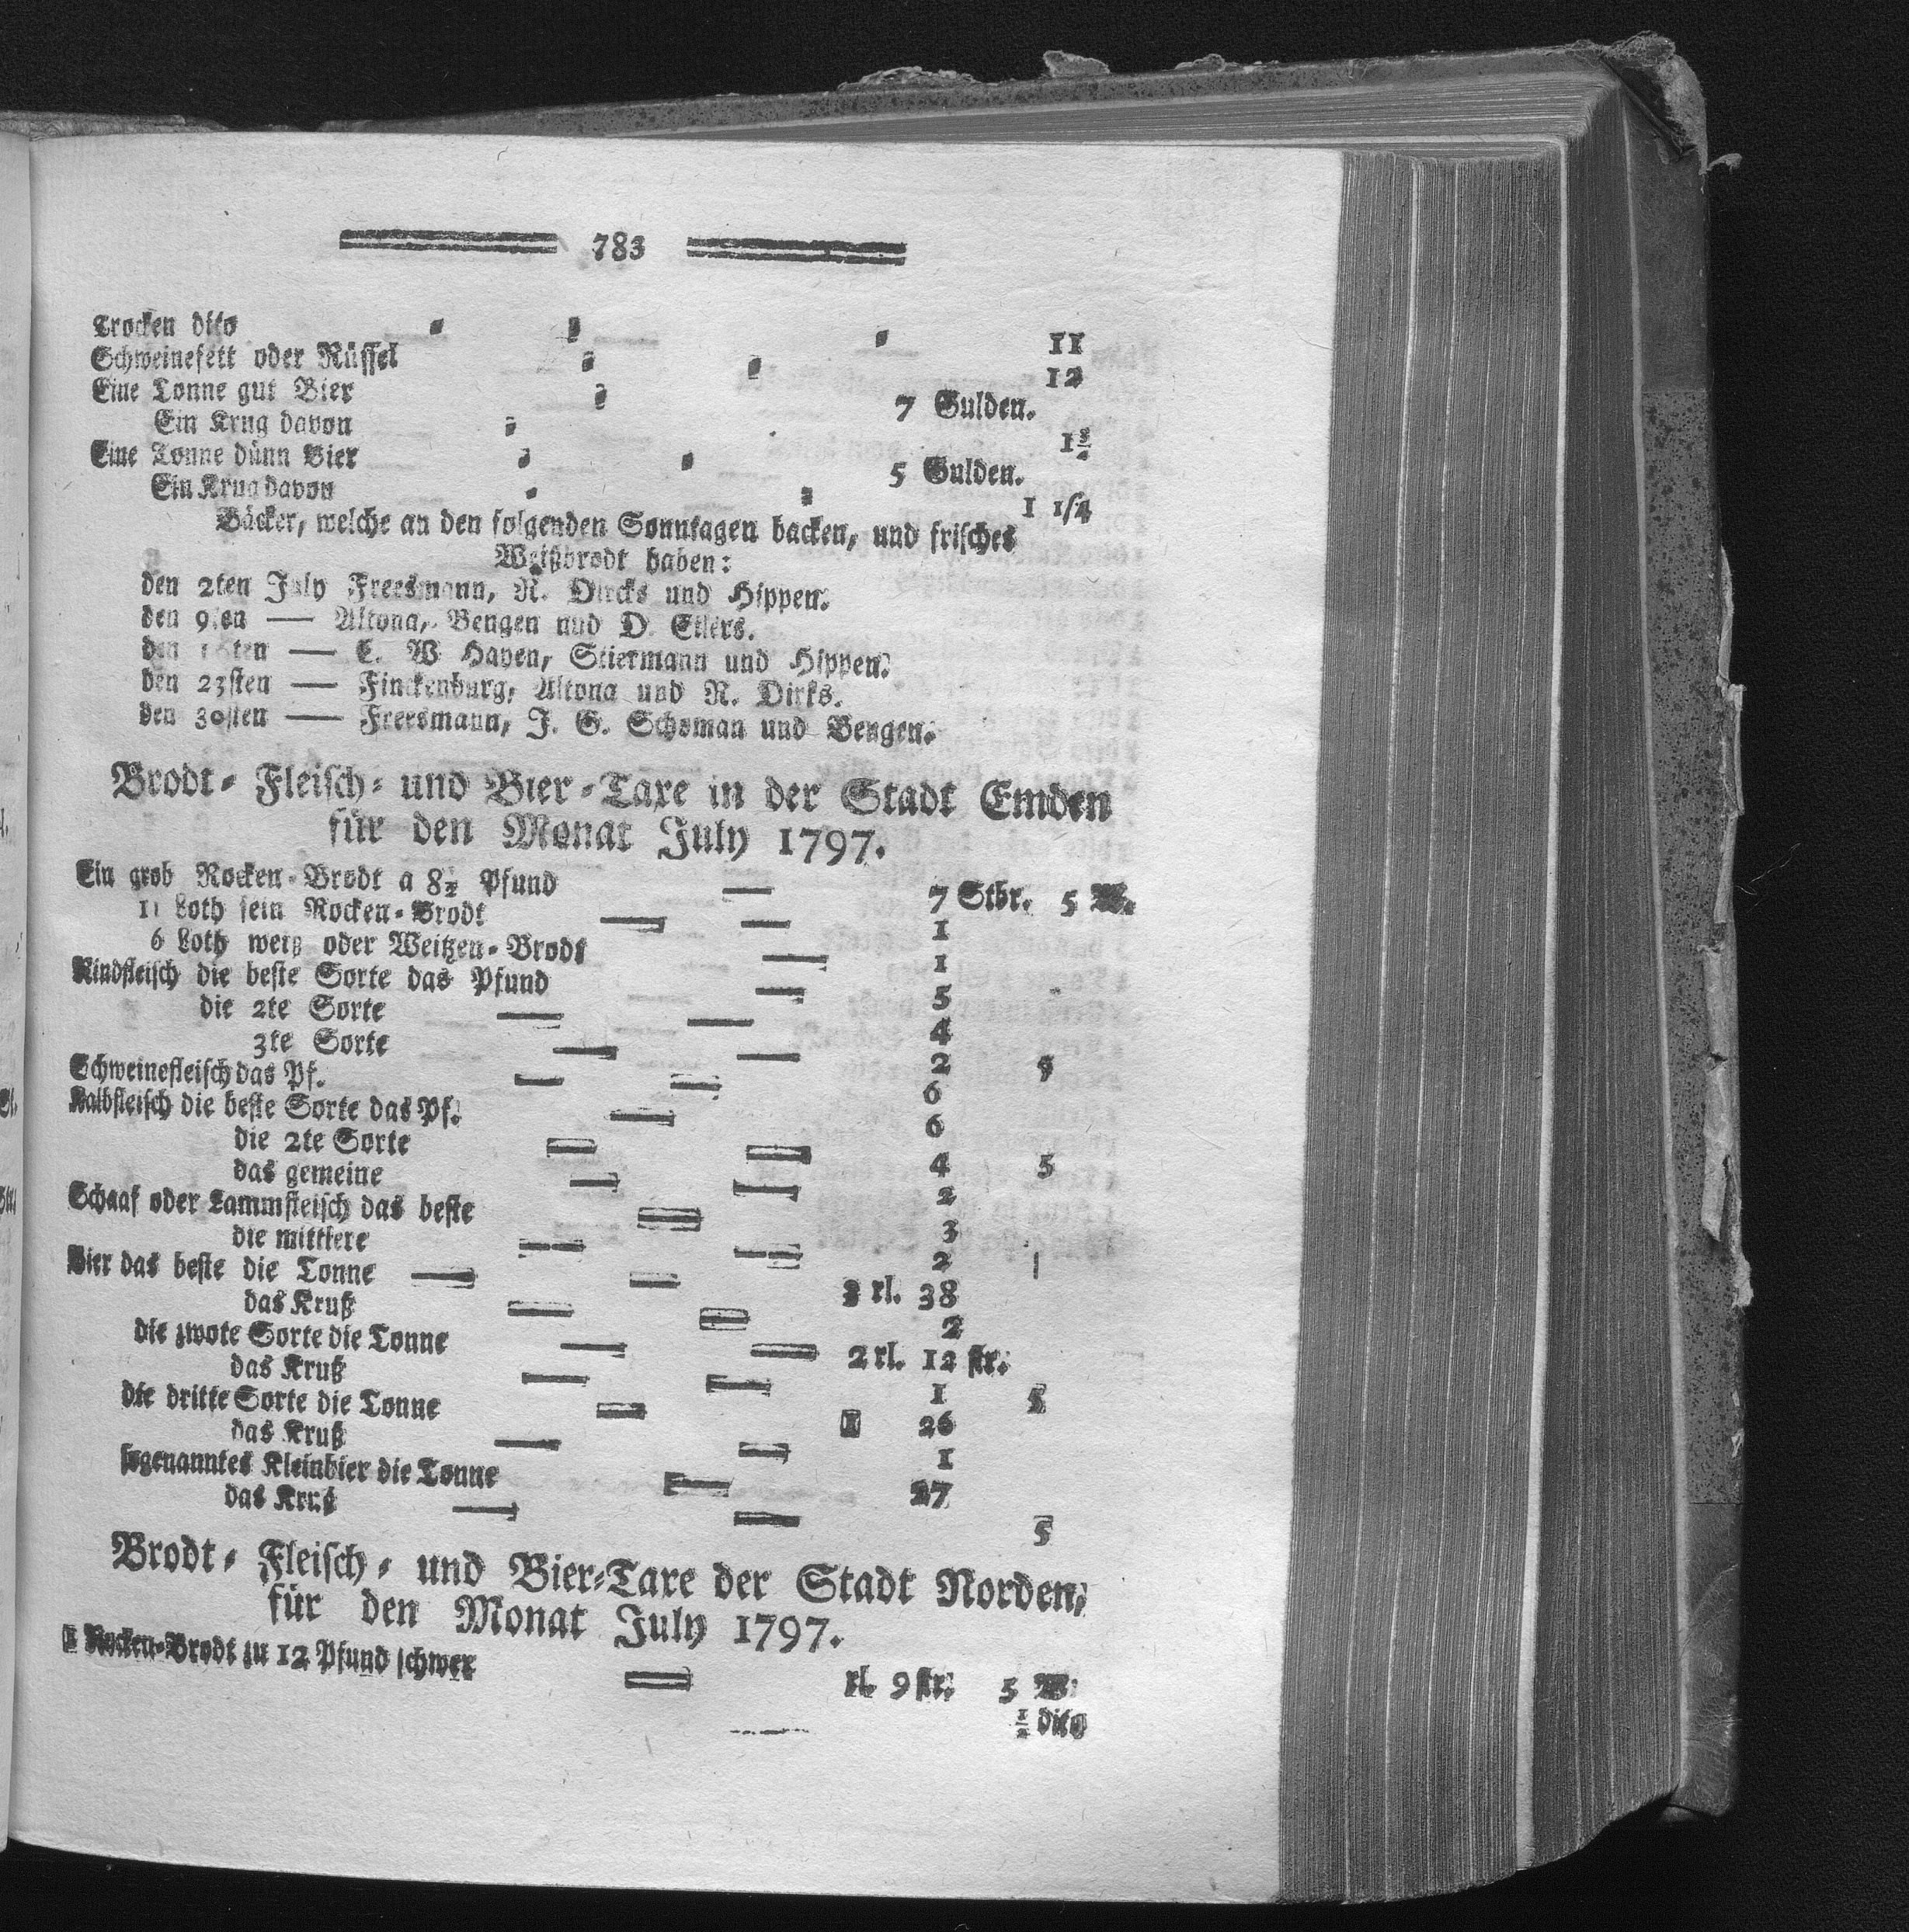 783
Trocken dito 11
Schweinefett oder Rüssel 12
Eine Tonne gut Bier 7 Gulden.
Ein Krug davon 1¾
Eine Tonne dünn Bier 5 Gulden.
Ein Krug davon 1 1/4
Bäcker, welche an den folgenden Sonntagen backen, und frisches
Weißbrodt haben:
den 2ten July Freersmann, R. Dircks und Hippen.
den 9ten — Altona, Bengen und D. Eilers.
den 16ten — C. W Hayen, Stiermann und Hippen.
den 23sten — Finckenburg, Altona und R. Dirks.
den 30sten — Freersmann, J. G. Schoman und Bengen.
Brodt- Fleisch- und Bier-Taxe in der Stadt Emden
für den Monat July 1797.
Ein grob Rocken-Brodt a 8½ Pfund — 7 Stbr. 5 W.
11 Loth fein Rocken-Brodt — — 1
6 Loth weiß oder Weitzen-Brodt — 1
Rindfleisch die beste Sorte das Pfund — 5
die 2te Sorte — — 4
3te Sorte — — 2 5
Schweinefleisch das Pf. — — 6
Kalbfleisch die beste Sorte das Pf. — 6
die 2te Sorte — — 4 5
das gemeine — — 2
Schaaf oder Lammfleisch das beste — 3
die mittlere — — 2
Bier das beste die Tonne — — 3 rl. 38
das Kruß — — 2
die zwote Sorte die Tonne — — 2 rl. 12 str.
das Kruß — — 1 5
die dritte Sorte die Tonne — 1 26
das Kruß — — 1
sogenanntes Kleinbier die Tonne — 27
das Kruß — — 5
Brodt- Fleisch- und Bier-Taxe der Stadt Norden,
für den Monat July 1797.
1 Rocken-Brodt zu 12 Pfund schwer — rl. 9 str. 5 W.
½ dito